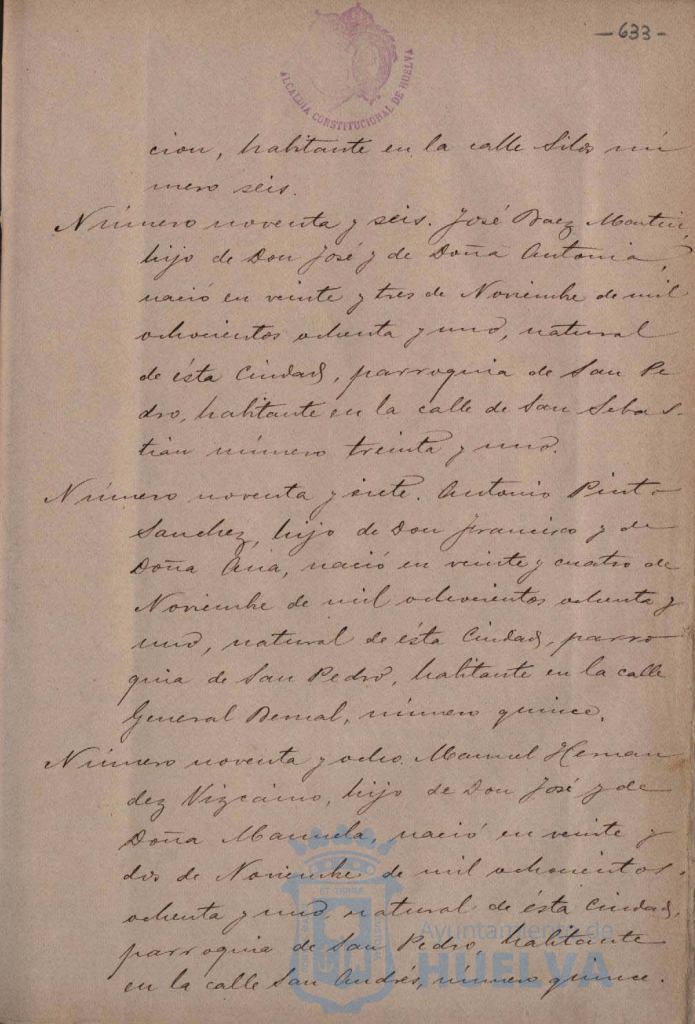 -633-
ALCALDIA CONSTITUCIONAL DE HUELVA
cion, habitante en la calle Silos nú
mero seis.
Número noventa y seis. José Baez Martin,
hijo de Don José y de Doña Antonia,
nació en veinte y tres de Noviembre de mil
ochocientos ochenta y uno, natural
de ésta Ciudad, parroquia de San Pe
dro, habitante en la calle de San Sebas-
tián número treinta y uno.
Número noventa y siete. Antonio Pinto
Sanchez, hijo de Don Francisco y de
Doña Ana, nació en veinte y cuatro de
Noviembre de mil ochocientos ochenta y
uno, natural de ésta Ciudad, parro
quia de San Pedro, habitante en la calle
General Bernal, número quince.
Número noventa y ocho. Manuel Hernan
dez Vizcaino, hijo de Don José y de
Doña Manuela, nació en veinte y
dos de Noviembre de mil ochocientos
ochenta y uno, natural de ésta Ciudad,
parroquia de San Pedro, habitante
en la calle San Andrés, número quince.
Ayuntamiento de
HUELVA